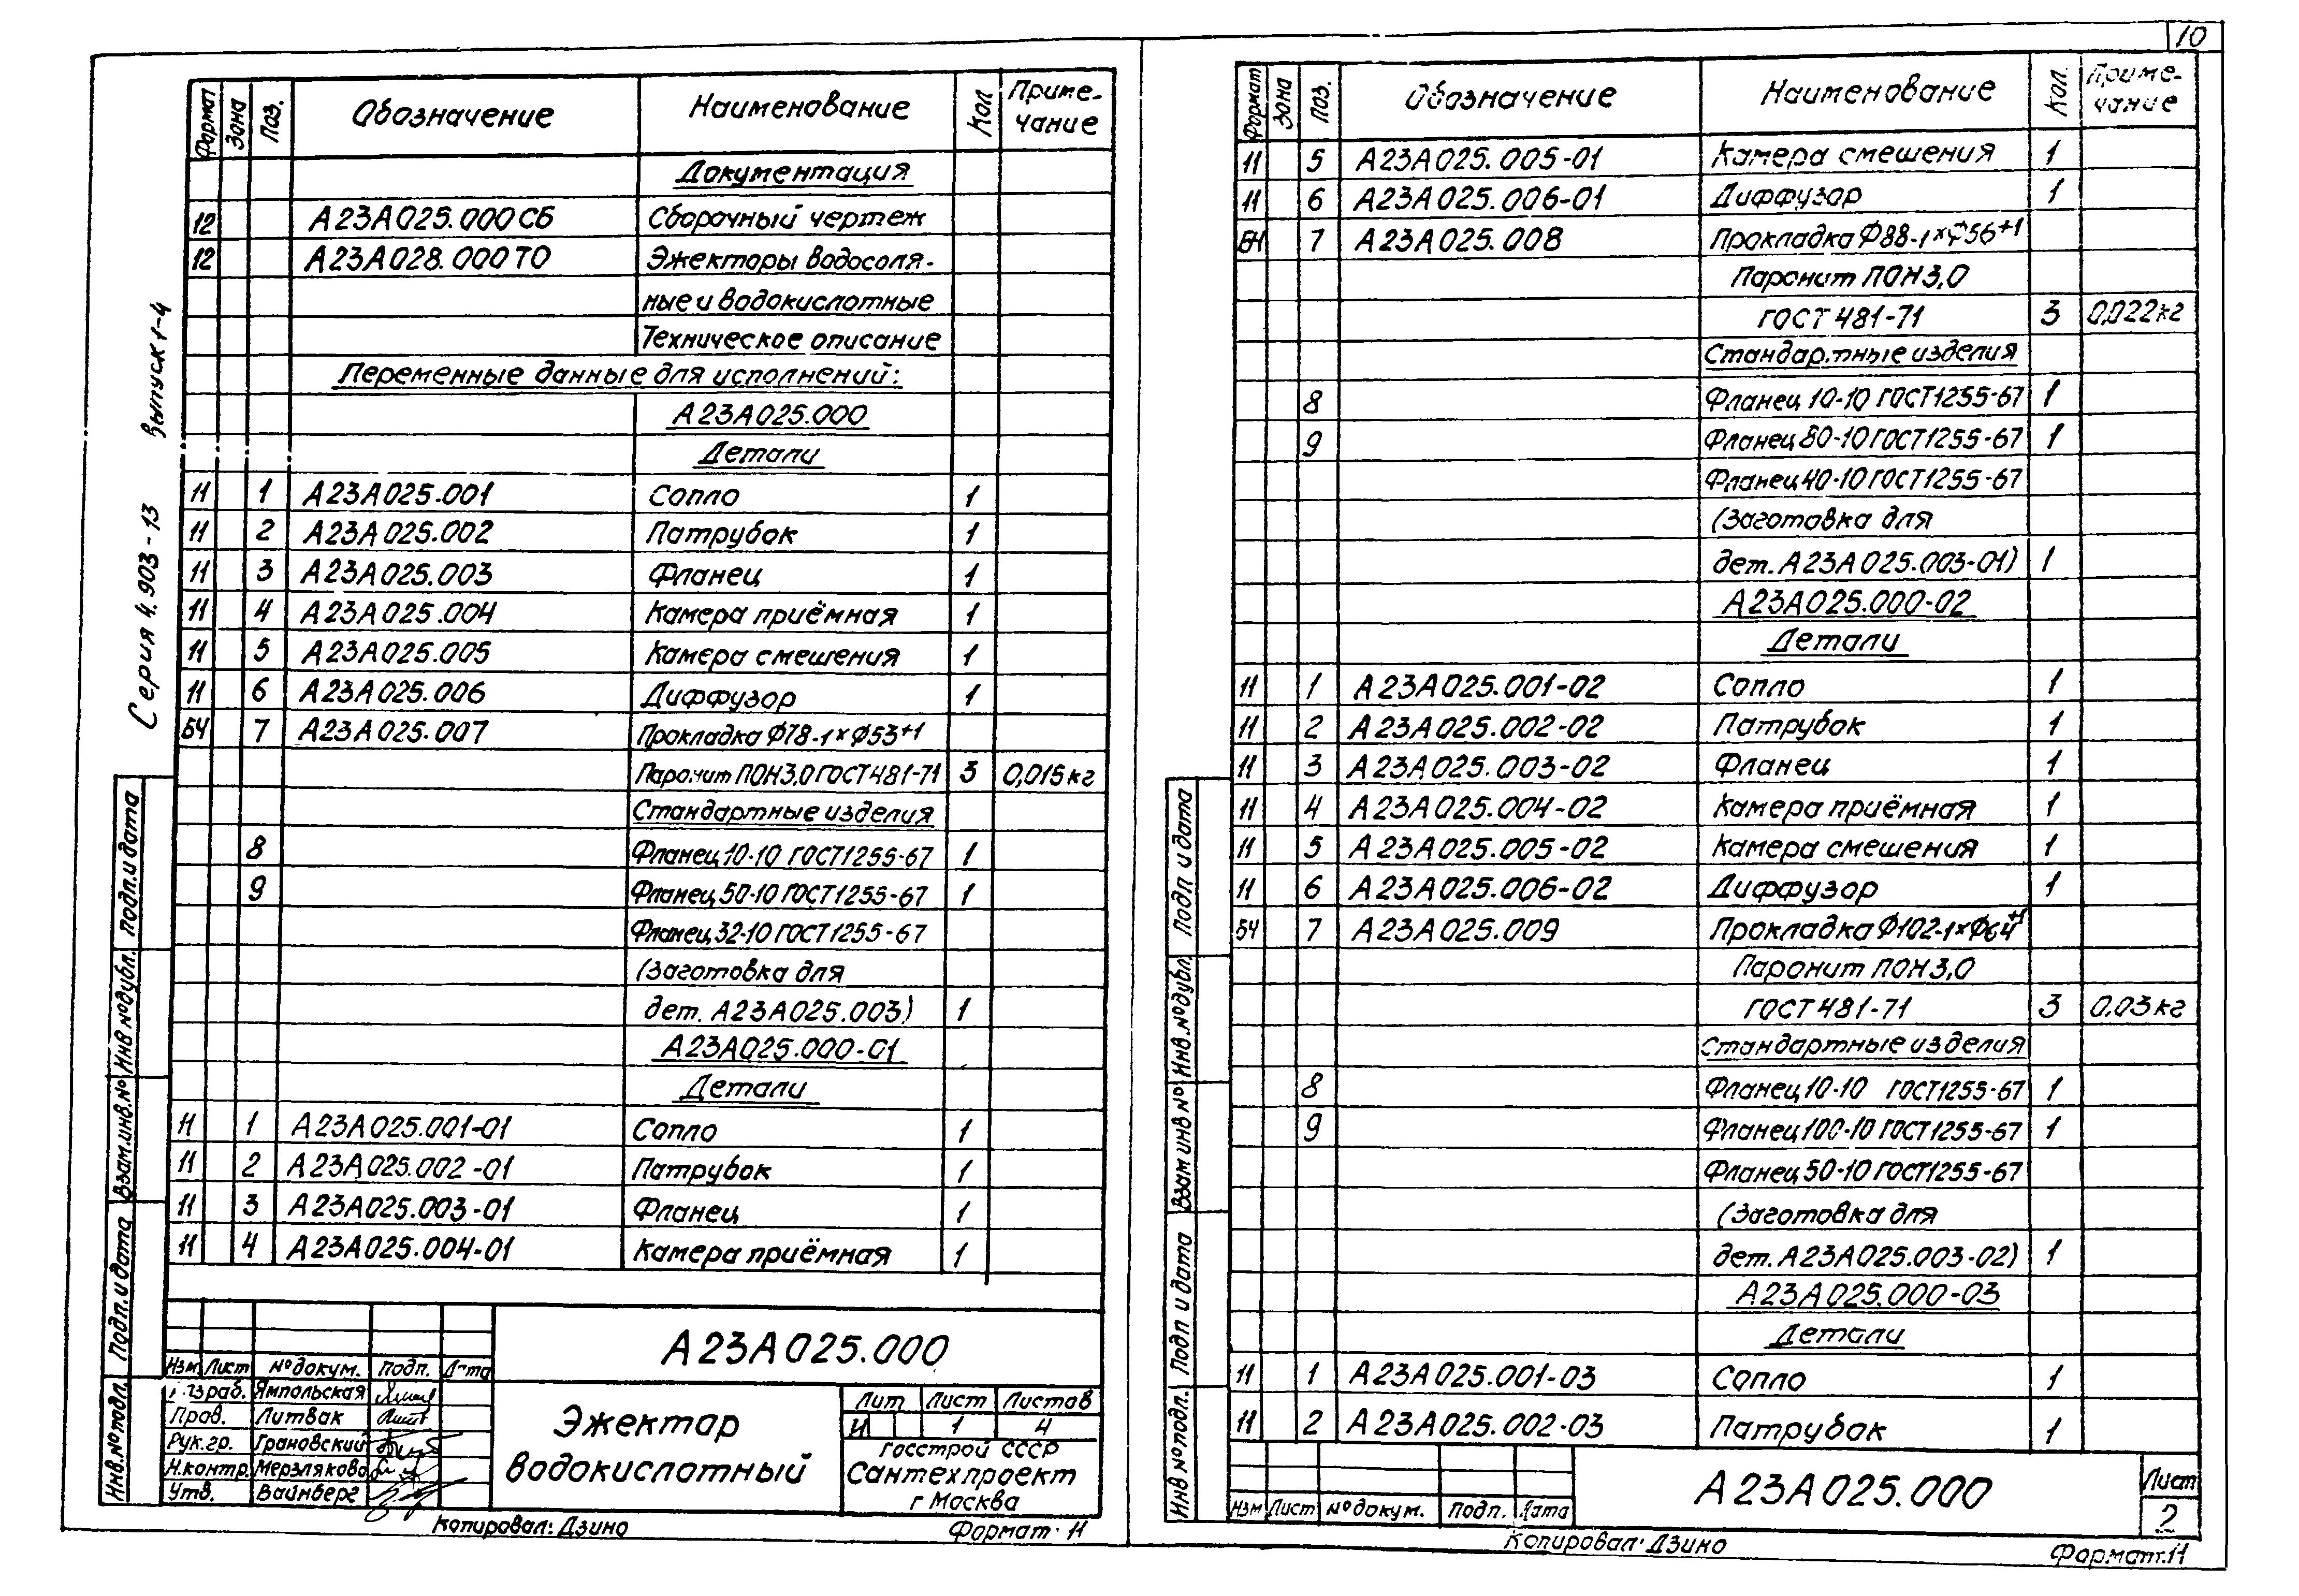 10
Серия 4.903-13 Выпуск 1-4
Формат Зона Поз. Обозначение Наименование Кол Приме-чание
Документация
12 А23А025.000СБ Сборочный чертеж
12 А23А028.000ТО Эжекторы водосоля-
ные и водокислотные
Техническое описание
Переменные данные для исполнений:
А23А025.000
Детали
11 1 А23А025.001 Сопло 1
11 2 А23А025.002 Патрубок 1
11 3 А23А025.003 Фланец 1
11 4 А23А025.004 Камера приёмная 1
11 5 А23А025.005 Камера смешения 1
11 6 А23А025.006 Диффузор 1
БЧ 7 А23А025.007 Прокладка Ф78-1×Ф53+1
Паронит ПОН3,0 ГОСТ481-71 3 0,015кг
Стандартные изделия
8 Фланец 10-10 ГОСТ1255-67 1
9 Фланец 50-10 ГОСТ1255-67 1
Фланец 32-10 ГОСТ1255-67
(Заготовка для
дет. А23А025.003) 1
А23А025.000-01
Детали
11 1 А23А025.001-01 Сопло 1
11 2 А23А025.002-01 Патрубок 1
11 3 А23А025.003-01 Фланец 1
11 4 А23А025.004-01 Камера приёмная 1
А23А025.000
Изм Лист № докум. Подп. Дата
Разраб. Ямпольская
Пров. Литвак
Рук.гр. Грановский
Н.контр. Мерзлякова
Утв. Вайнберг
Эжектор
водокислотный
Лит Лист Листов
И 1 4
Госстрой СССР
Сантехпроект
г Москва
Инв.№подл. Подп. и дата Взам.инв.№ Инв №дубл. Подп. и дата
Копировал: Дзино Формат 11
Формат Зона Поз. Обозначение Наименование Кол. Приме-чание
11 5 А23А025.005-01 Камера смешения 1
11 6 А23А025.006-01 Диффузор 1
БЧ 7 А23А025.008 Прокладка Ф88-1×Ф56+1
Паронит ПОН3,0
ГОСТ481-71 3 0,022кг
Стандартные изделия
8 Фланец 10-10 ГОСТ1255-67 1
9 Фланец 80-10 ГОСТ1255-67 1
Фланец 40-10 ГОСТ1255-67
(Заготовка для
дет. А23А025.003-01) 1
А23А025.000-02
Детали
11 1 А23А025.001-02 Сопло 1
11 2 А23А025.002-02 Патрубок 1
11 3 А23А025.003-02 Фланец 1
11 4 А23А025.004-02 Камера приёмная 1
11 5 А23А025.005-02 Камера смешения 1
11 6 А23А025.006-02 Диффузор 1
БЧ 7 А23А025.009 Прокладка Ф102-1×Ф64+1
Паронит ПОН3,0
ГОСТ481-71 3 0.03кг
Стандартные изделия
8 Фланец 10-10 ГОСТ1255-67 1
9 Фланец 100-10 ГОСТ1255-67 1
Фланец 50-10 ГОСТ1255-67
(Заготовка для
дет. А23А025.003-02) 1
А23А025.000-03
Детали
11 1 А23А025.001-03 Сопло 1
11 2 А23А025.002-03 Патрубок 1
Изм Лист № докум. Подп. Дата
А23А025.000
Лист
2
Инв №подл. Подп и дата Взам инв № Инв.№дубл. Подп и дата
Копировал: Дзино Формат.11